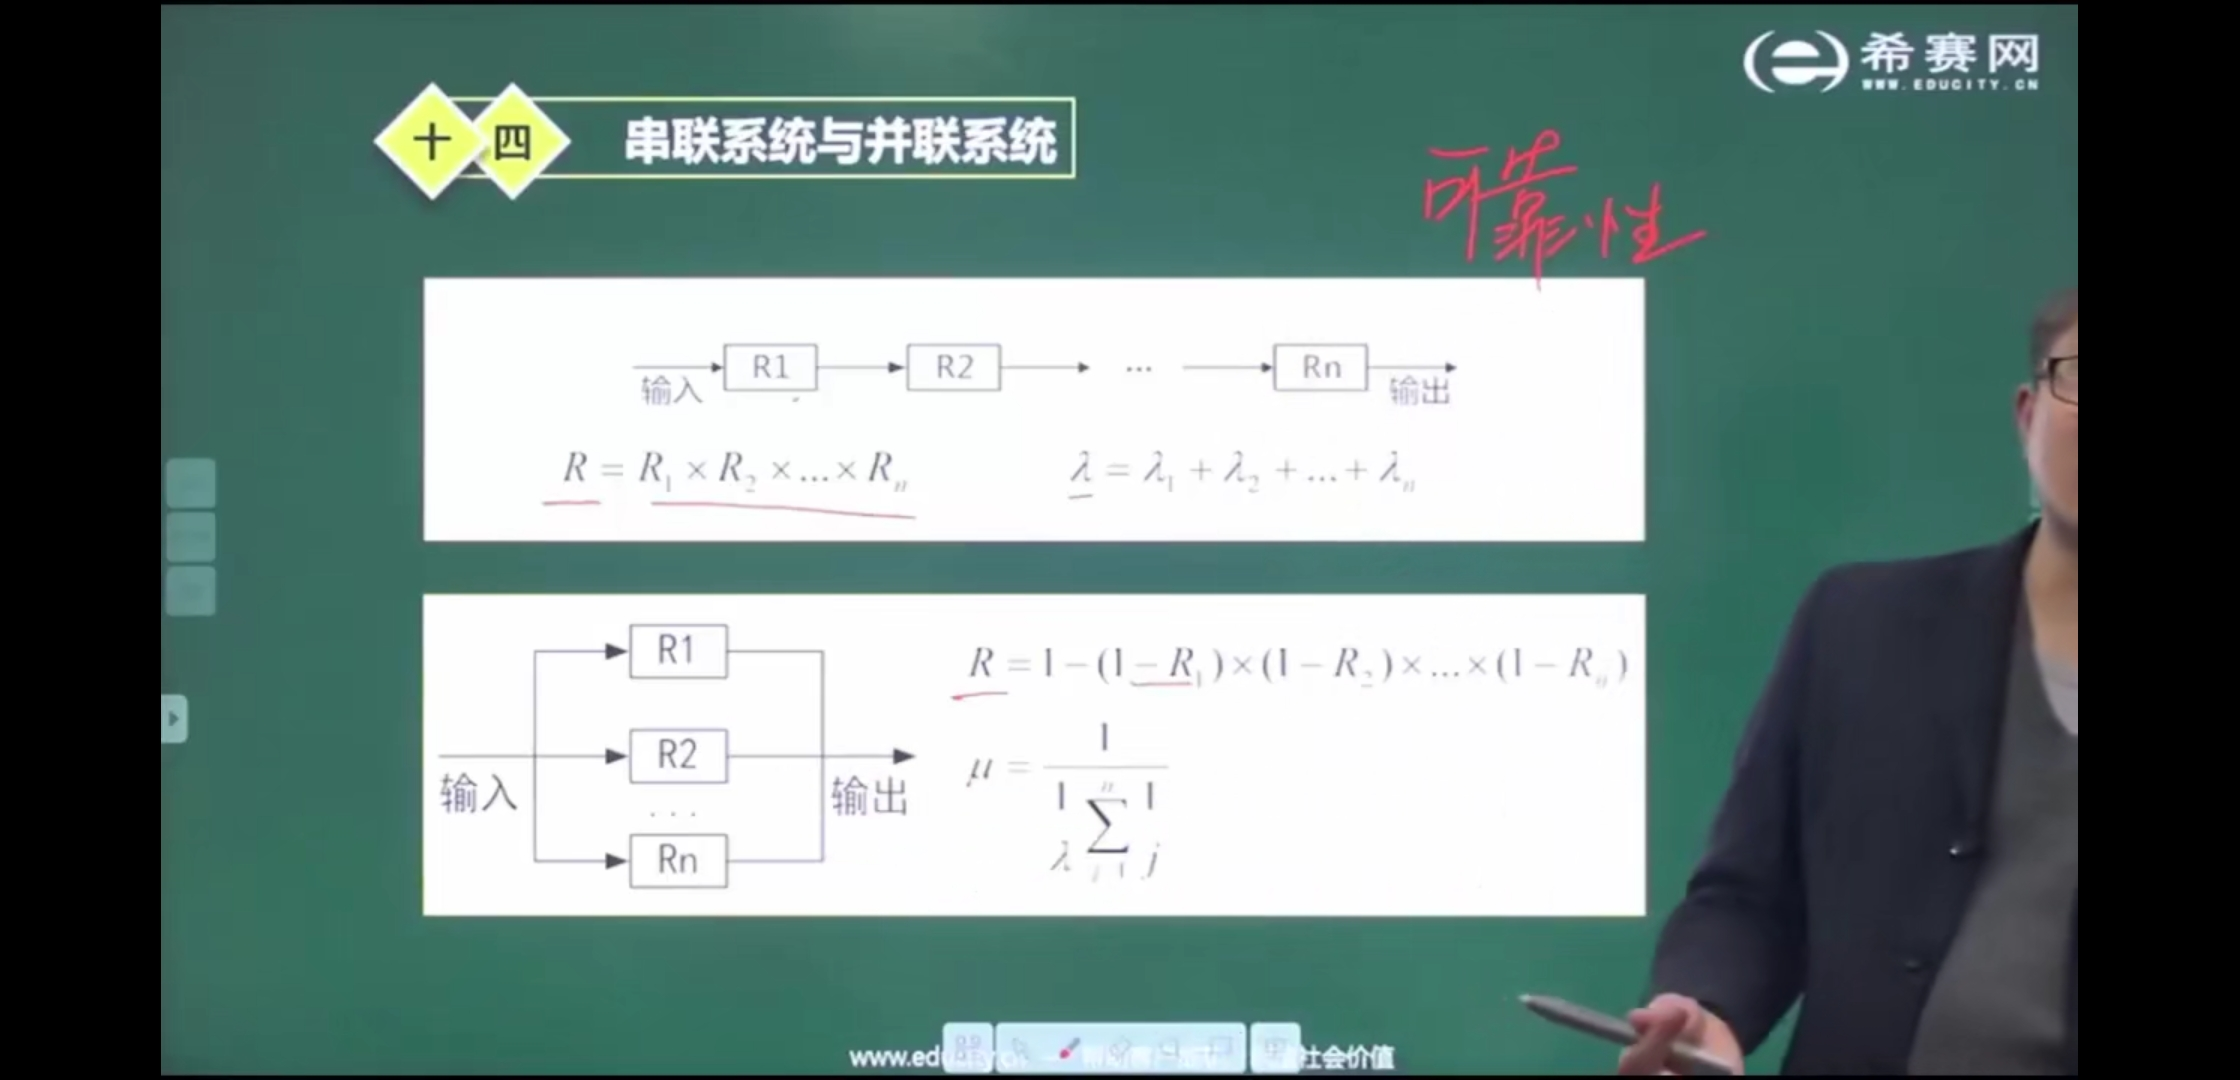 希赛网
WWW.EDUCITY.CN
十四 串联系统与并联系统
可靠性
R1 R2 ... Rn
输入 输出
R = R₁ × R₂ × ... × Rₙ
λ = λ₁ + λ₂ + ... + λₙ
R1
R2
...
Rn
输入 输出
R = 1 − (1 − R₁) × (1 − R₂) × ... × (1 − Rₙ)
μ = 1 / (1/λ ∑ 1/j)
社会价值